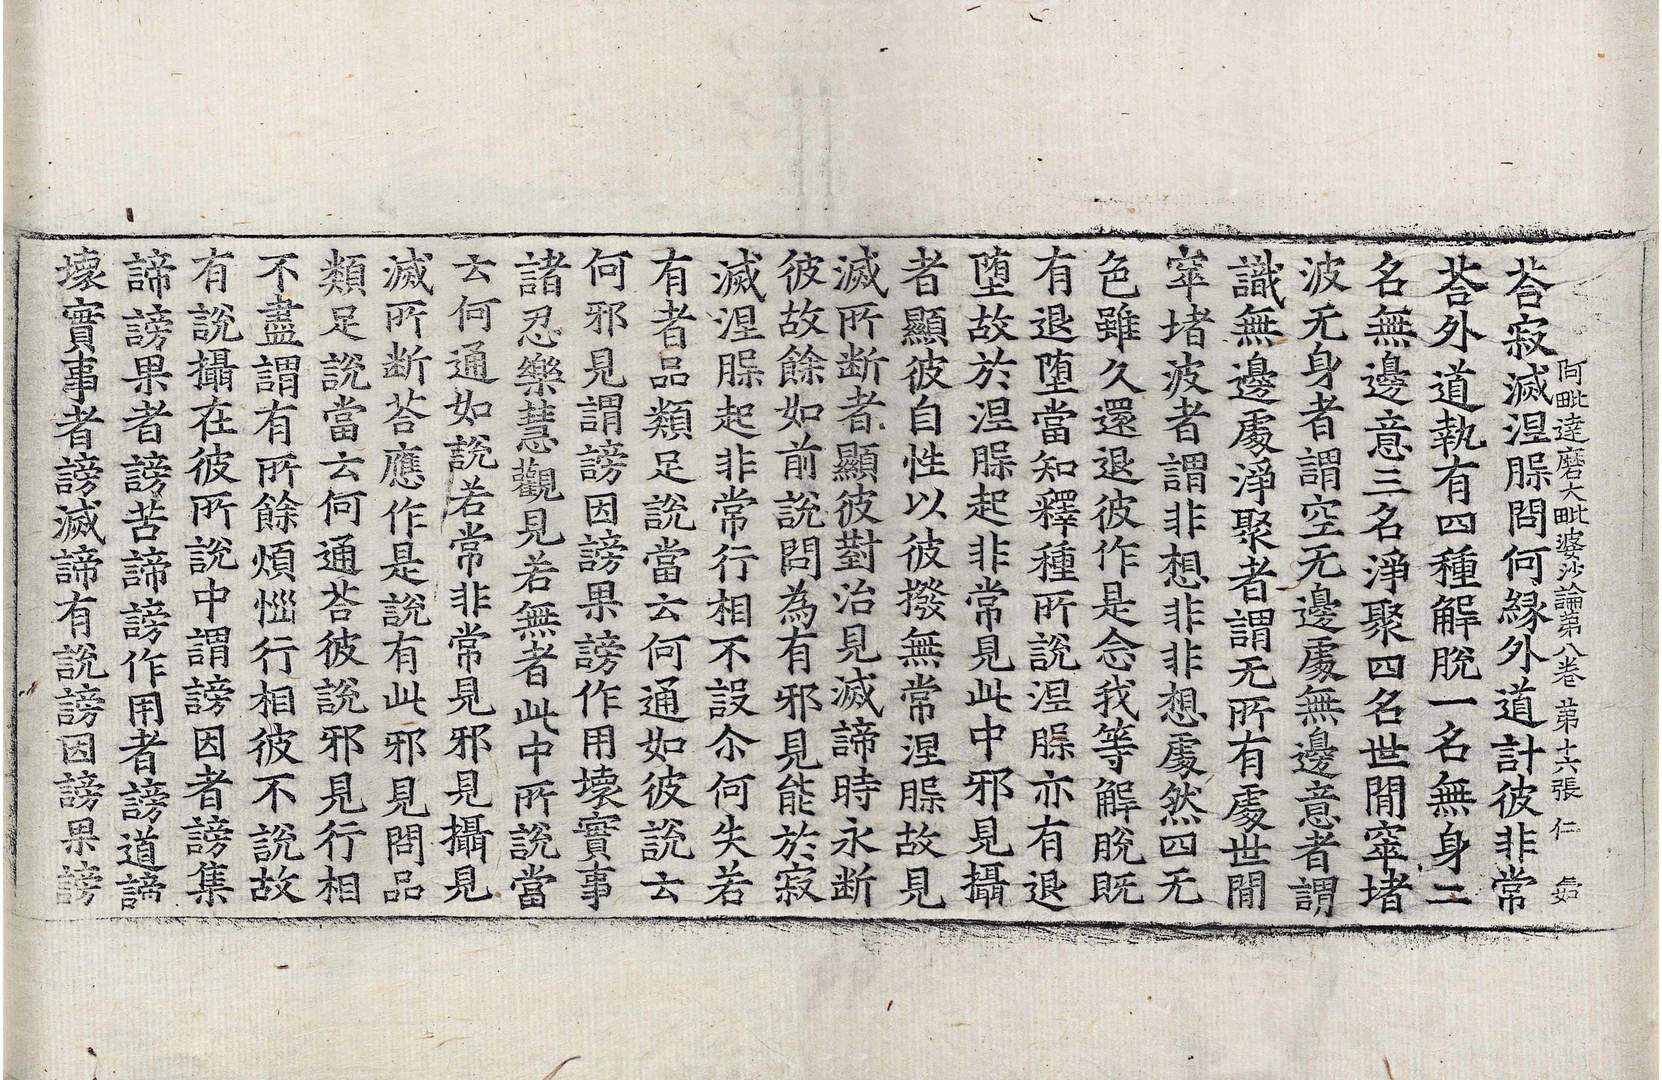 阿毗達磨大毗婆沙論第八卷 第十六張 仁
荅寂滅涅槃問何緣外道計彼非常
荅外道執有四種解脫一名無身二
名無邊意三名淨聚四名世間窣堵
波无身者謂空无邊處無邊意者謂
識無邊處淨聚者謂无所有處世間
窣堵波者謂非想非非想處然四无
色雖久還退彼作是念我等解脫既
有退墮當知釋種所說涅槃亦有退
墮故於涅槃起非常見此中邪見攝
者顯彼自性以彼撥無常涅槃故見
滅所断者顯彼對治見滅諦時永断
彼故餘如前說問為有邪見能於寂
滅涅槃起非常行相不設尒何失若
有者品類足說當云何通如彼說云
何邪見謂謗因謗果謗作用壞實事
諸忍樂慧觀見若無者此中所說當
云何通如說若常非常見邪見攝見
滅所断荅應作是說有此邪見問品
類足說當云何通荅彼說邪見行相
不盡謂有所餘煩惱行相彼不說故
有說攝在彼所說中謂謗因者謗集
諦謗果者謗苦諦謗作用者謗道諦
壞實事者謗滅諦有說謗因謗果謗